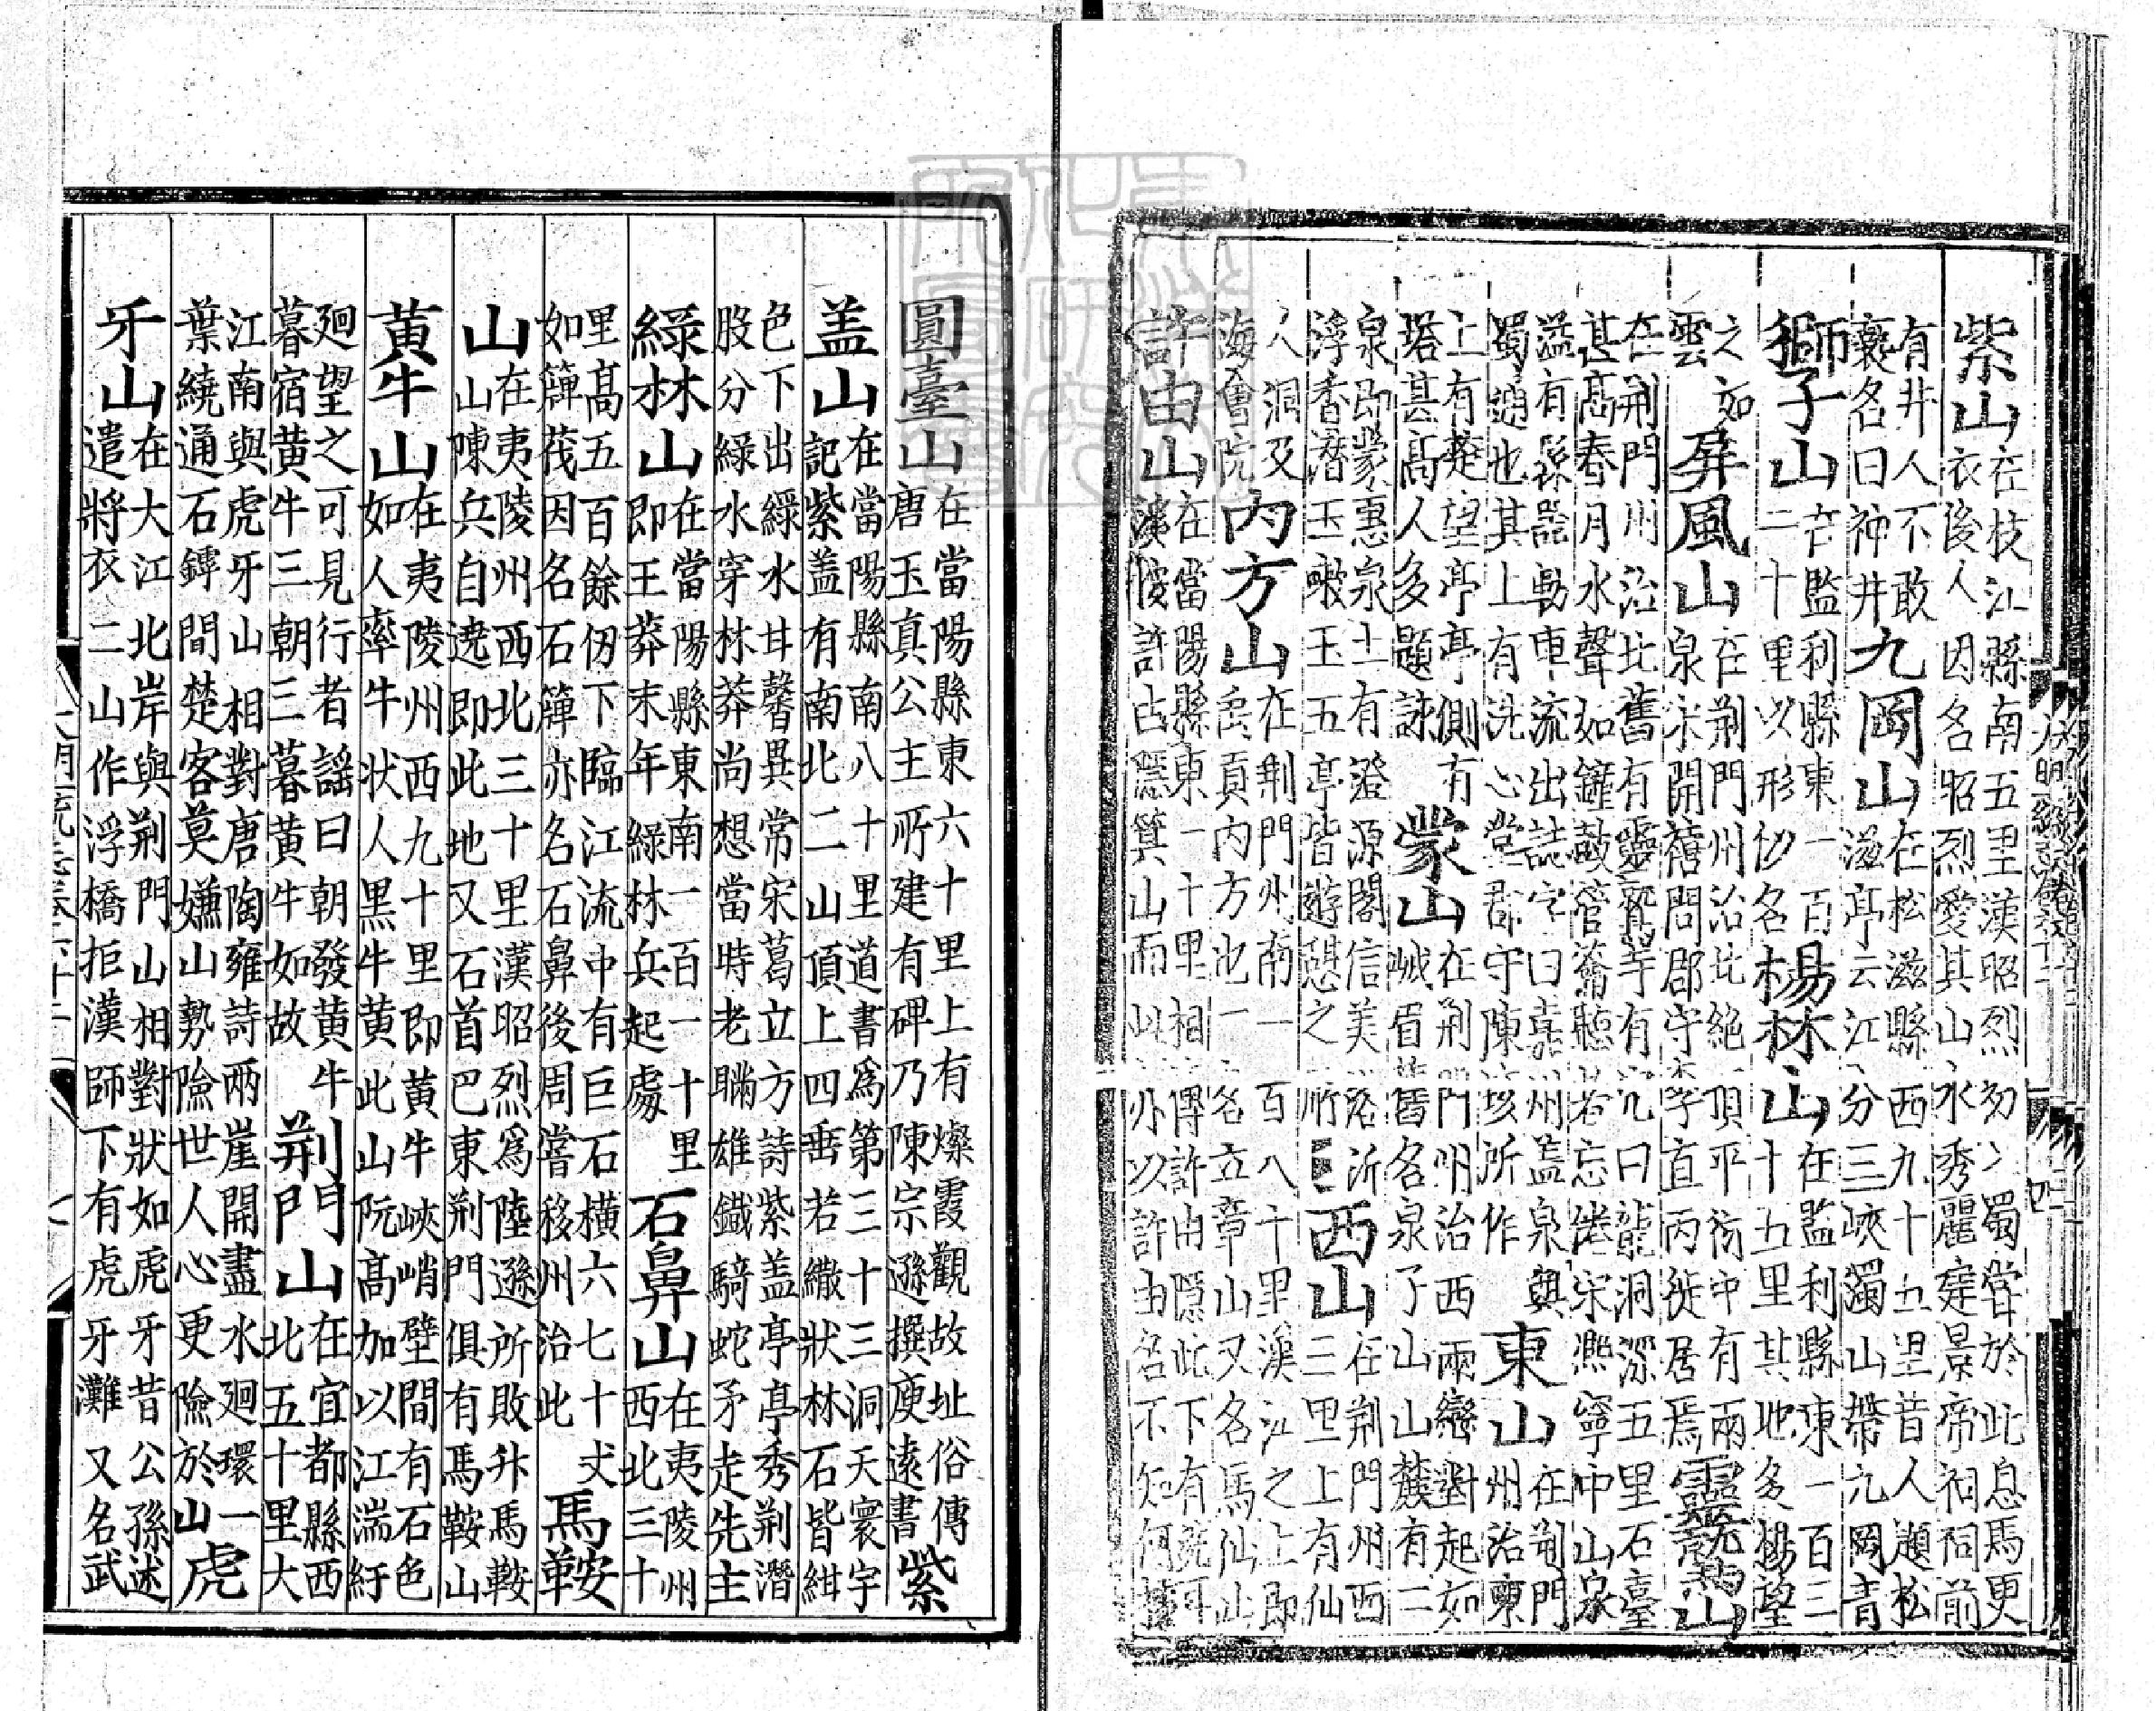 紫山在枝江縣南五里漢昭烈初入蜀嘗於此息馬更
衣後人因名昭烈愛其山水秀麗寔景帝祠祠前
有井人不敢
褻名曰神井九岡山在松滋縣西九十五里昔人題松
滋亭云江分三峽濁山帶九岡青
獅子山在監利縣東一百
二十里以形似名楊林山在監利縣東一百三
十五里其地多楊望
之如
雲屏風山在荆門州治北絶頂平衍中有兩
泉宋開禧間郡守李直丙徙居焉靈鷲山
在荆門州治北舊有靈鷲寺有穴曰龍洞深五里石臺
甚高春月水聲如鐘鼓管籥聽者忘倦宋熈寧中山泉
溢有器動車流出誌字曰嘉州盖泉與
蜀通也其上有洗心堂郡守陳垓所作東山在荆門
州治東
上有楚望亭亭側有
塔甚高人多題詠蒙山在荆門州治西兩巒對起如
峨眉舊名泉子山山麓有二
泉即蒙惠泉上有澄源閣信美浴沂
浮香潛玉漱玉五亭皆遊憇之所西山在荆門州西
三里上有仙
人洞及
海會院內方山在荆門州南一百八十里漢江之上即
禹貢內方也一名立章山又名馬仙山
許由山在當陽縣東一十里相傳許由隱此下有洗耳
許由隱箕山而以亦以許由名不知何據
圓臺山在當陽縣東六十里上有燦霞觀故址俗傳
唐玉真公主所建有碑乃陳宗遜撰庾遠書紫
盖山在當陽縣南八十里道書爲第三十三洞天寰宇
記紫盖有南北二山頂上四垂若繖狀林石皆紺
色下出綵水甘馨異常宋葛立方詩紫盖亭亭秀荆潛
股分綠水穿林莽尚想當時老瞞雄鐵騎蛇矛走先主
綠林山在當陽縣東南一百一十里
即王莽末年綠林兵起處石鼻山在夷陵州
西北三十
里高五百餘仞下臨江流中有巨石橫六七十丈
如簰茷因名石簰亦名石鼻後周嘗移州治此馬鞍
山在夷陵州西北三十里漢昭烈爲陸遜所敗升馬鞍
山陳兵自遶即此地又石首巴東荆門俱有馬鞍山
黃牛山在夷陵州西九十里即黃牛峽峭壁間有石色
如人牽牛狀人黑牛黃此山阮高加以江湍紆
廻望之可見行者謡曰朝發黃牛
暮宿黃牛三朝三暮黃牛如故荆門山在宜都縣西
北五十里大
江南與虎牙山相對唐陶雍詩两崖開盡水廻環一
葉繞通石鏬間楚客莫嫌山勢險世人心更險於山虎
牙山在大江北岸與荆門山相對狀如虎牙昔公孫述
遣將衣二山作浮橋拒漢師下有虎牙灘又名武
大明一統志卷六十二